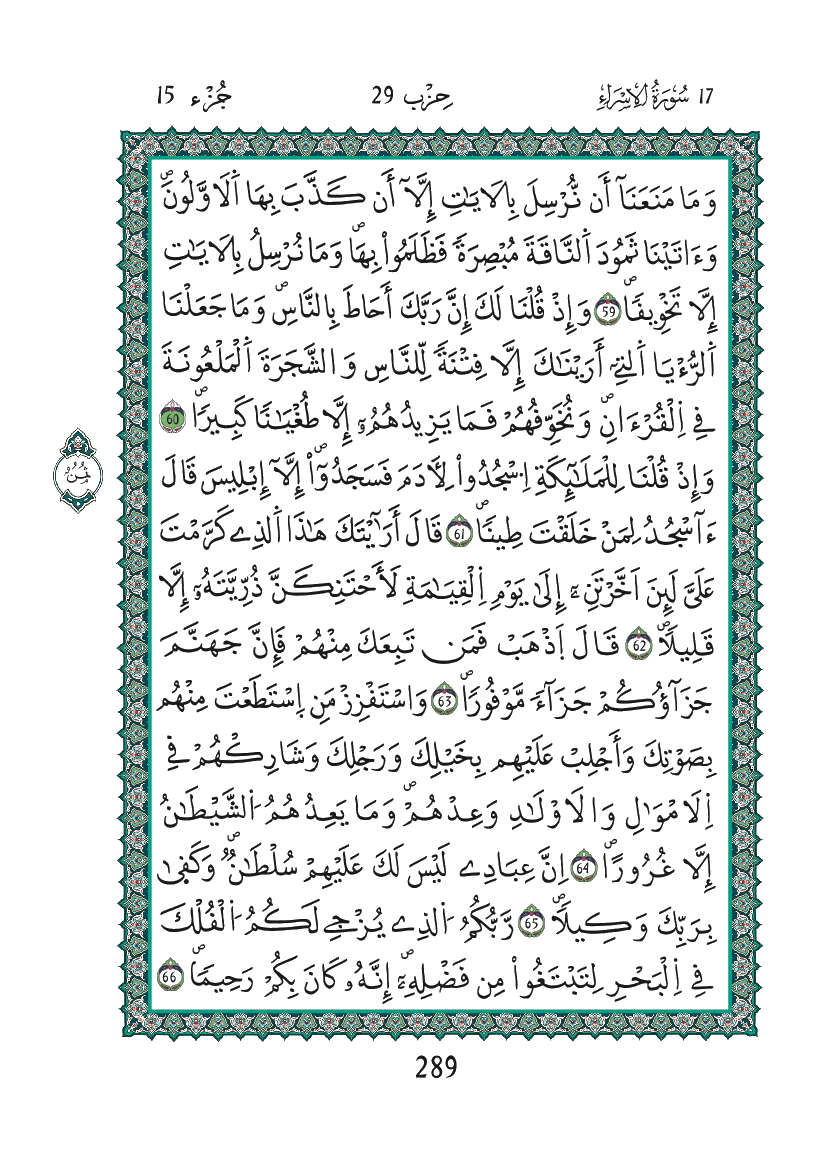 17 سُورَةُ الِاسْرَاءِ حِزْب 29 جُزْء 15
وَمَا مَنَعَنَآ أَن نُّرْسِلَ بِالَايَٰتِ إِلَّآ أَن كَذَّبَ بِهَا اَ۬لَاوَّلُونَۖ
وَءَاتَيْنَا ثَمُودَ اَ۬لنَّاقَةَ مُبْصِرَةٗ فَظَلَمُواْ بِهَاۖ وَمَا نُرْسِلُ بِالَايَٰتِ
إِلَّا تَخْوِيفٗاۖ 59 وَإِذْ قُلْنَا لَكَ إِنَّ رَبَّكَ أَحَاطَ بِالنَّاسِۖ وَمَا جَعَلْنَا
اَ۬لرُّءْيَا اَ۬لتِےٓ أَرَيْنَٰكَ إِلَّا فِتْنَةٗ لِّلنَّاسِ وَالشَّجَرَةَ اَ۬لْمَلْعُونَةَ
فِے اِ۬لْقُرْءَانِۖ وَنُخَوِّفُهُمْ فَمَا يَزِيدُهُمُۥٓ إِلَّا طُغْيَٰنٗا كَبِيرٗاۖ 60
ثُمُن
وَإِذْ قُلْنَا لِلْمَلَٰٓئِكَةِ اِ۟سْجُدُواْ لِأٓدَمَ فَسَجَدُوٓاْۖ إِلَّآ إِبْلِيسَ قَالَ
ءَآسْجُدُ لِمَنْ خَلَقْتَ طِينٗاۖ 61 قَالَ أَرَٰٓيْتَكَ هَٰذَا اَ۬لذِے كَرَّمْتَ
عَلَيَّ لَئِنَ اَخَّرْتَنِۦٓ إِلَىٰ يَوْمِ اِ۬لْقِيَٰمَةِ لَأَحْتَنِكَنَّ ذُرِّيَّتَهُۥٓ إِلَّا
قَلِيلٗاۖ 62 قَالَ اَ۪ذْهَبْ فَمَن تَبِعَكَ مِنْهُمْ فَإِنَّ جَهَنَّمَ
جَزَآؤُكُمْ جَزَآءٗ مَّوْفُورٗاۖ 63 وَاسْتَفْزِزْ مَنِ اِ۪سْتَطَعْتَ مِنْهُم
بِصَوْتِكَ وَأَجْلِبْ عَلَيْهِم بِخَيْلِكَ وَرَجْلِكَ وَشَارِكْهُمْ فِے
اِ۬لَامْوَٰلِ وَالَاوْلَٰدِ وَعِدْهُمْۖ وَمَا يَعِدُهُمُ اُ۬لشَّيْطَٰنُ
إِلَّا غُرُورًاۖ 64 اِنَّ عِبَادِے لَيْسَ لَكَ عَلَيْهِمْ سُلْطَٰنٞۖ وَكَفَىٰ
بِرَبِّكَ وَكِيلٗاۖ 65 رَّبُّكُمُ اُ۬لذِے يُزْجِے لَكُمُ اُ۬لْفُلْكَ
فِے اِ۬لْبَحْرِ لِتَبْتَغُواْ مِن فَضْلِهِۦٓۖ إِنَّهُۥ كَانَ بِكُمْ رَحِيمٗاۖ 66
289